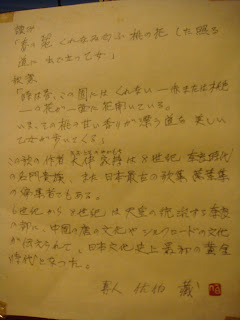 読み
「春の苑 くれなゐにほふ 桃の花 した照る
道に 出でたつ乙女」
釈意
「時は春、この園には くれない ― 赤または桃色
― の花が 一面に 花開いている。
いま、その桃の甘い香りが漂う道を 美しい
乙女が歩いてくる」
この歌の作者 大伴家持は 8世紀 奈良時代
の名門貴族、また 日本最古の歌集 萬葉集
の編集者でもある。
6世紀から8世紀は 大空の
の都に、中国の唐の文化や シルクロードの文化
が伝えられて、日本文化史上 最初の黄金
時代となった。
真人